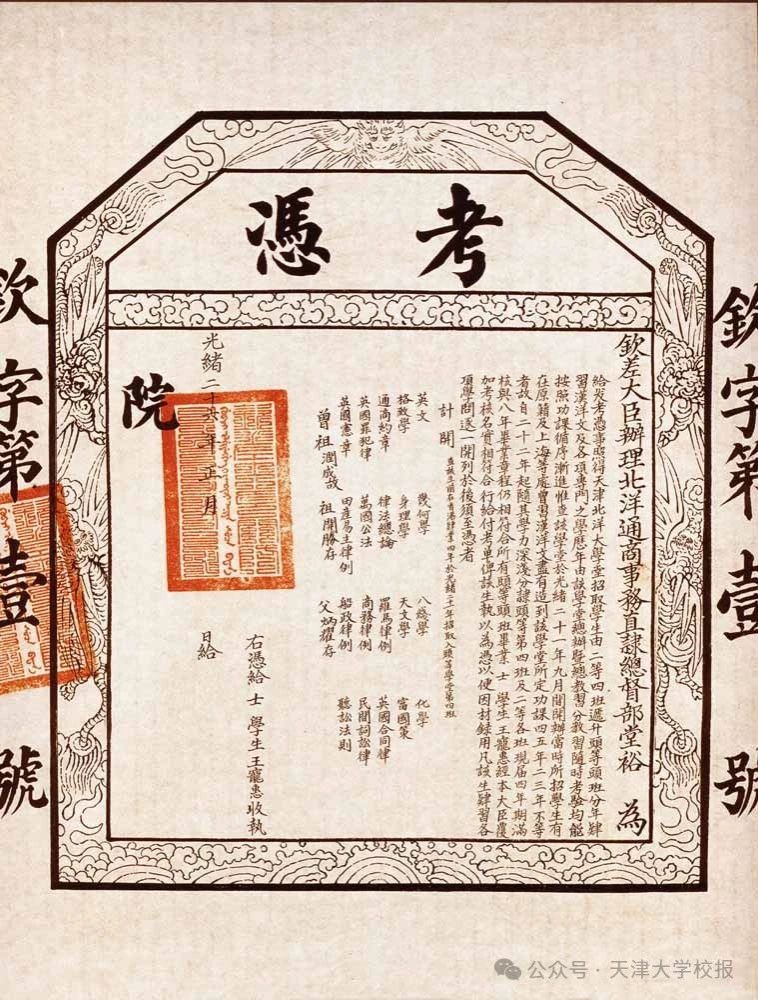 考憑
欽差大臣辦理北洋通商事務直隸總督部堂裕 為
給發考憑事照得天津北洋大學堂招取學生由二等四班遞升頭等頭班分年肄
習漢洋文及各項專門之學歷年由該學堂總辦暨總教習分教習隨時考驗均能
按照功課循序漸進惟查該學堂於光緒二十一年九月間開辦當時所招學生有
在原籍及上海等處曾習漢洋文盡有造到該學堂所定功課四五年二三年不等
者故自二十二年起隨其學力深淺分隸頭等第四班及二等各班現屆四年期滿
核與八年畢業章程仍相符合所有頭等頭班畢業 士 學生王寵惠經本大臣覆
加考核名實相符合行給付考單傳該生執以為憑以便因材錄用凡該生肄習各
項學問逐一開列於後須至憑者
計開
英文 幾何學 八綫學 化學
格致學 身理學 天文學 富國策
通商約章 律法總論 羅馬律例 英國合同律
英國罪犯律 萬國公法 商務律例 民間詞訟律
英國憲章 田產易主律例 船政律例 聽訟法則
曾祖潤成故 祖開勝存 父炳耀存
右憑給 士 學生王寵惠收執
光緒二十六年正月 日給
院
欽字第壹號
欽字第壹號
公众号·天津大学校报